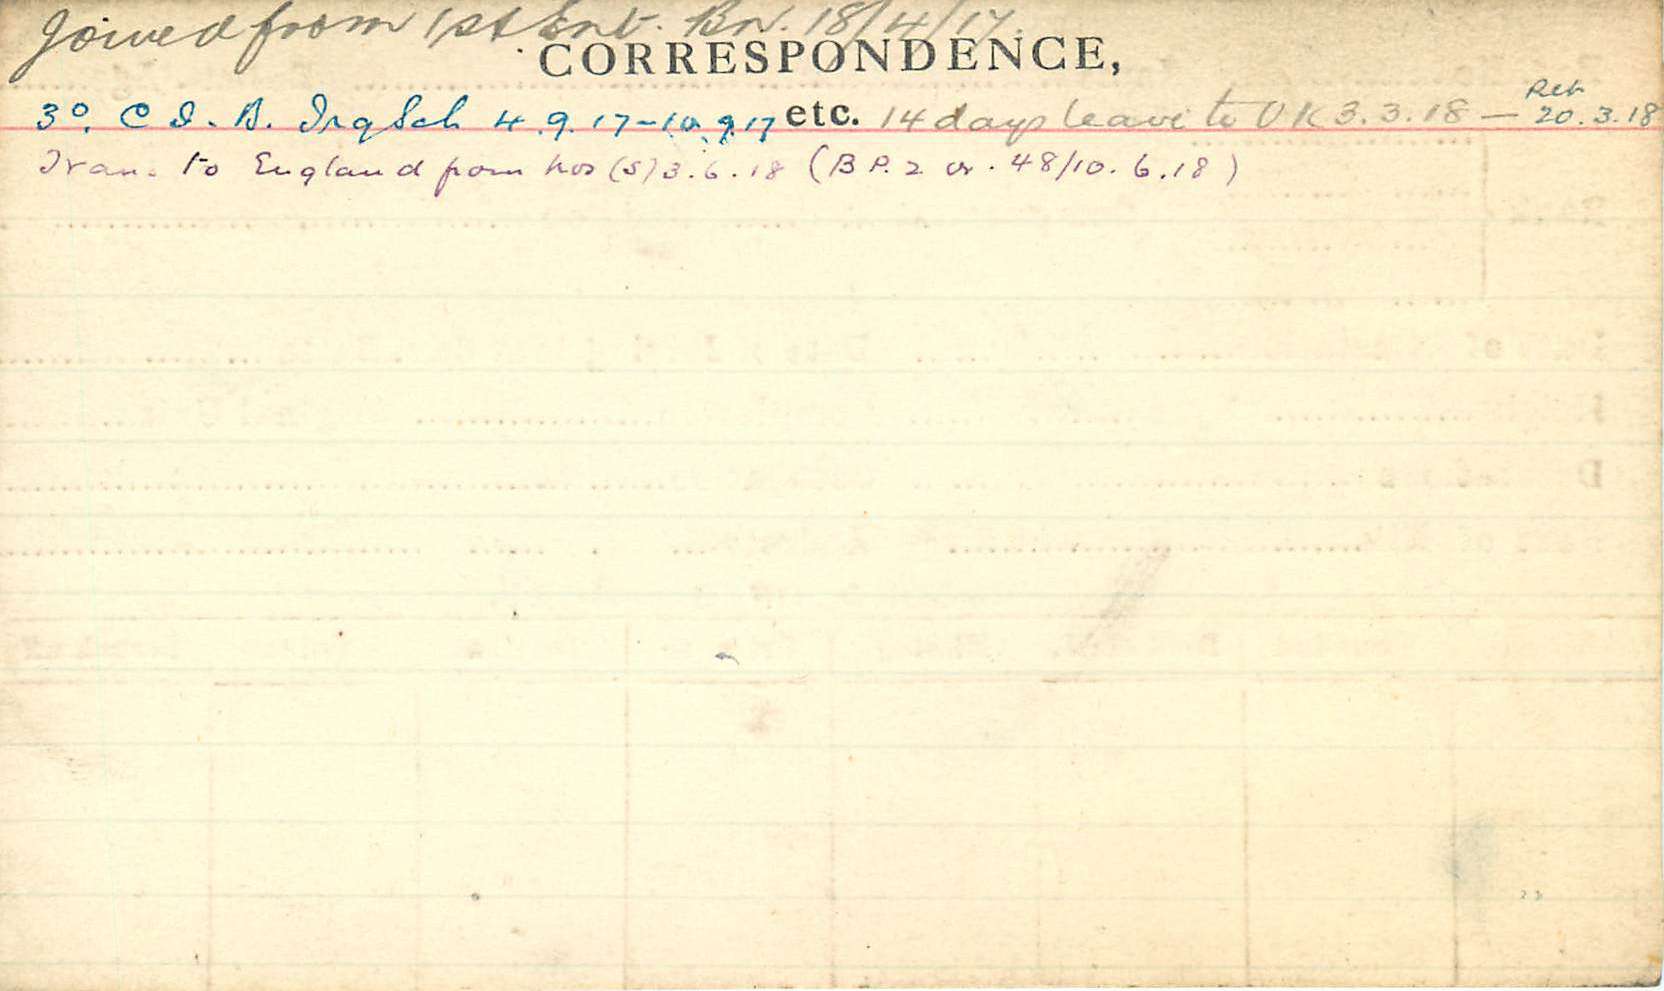 Joined from 1st Ent. Bn. 18/4/17.
CORRESPONDENCE,
3º. C I. B. Trg Sch 4.9.17-10.9.17 etc. 14 days leave to UK 3.3.18 — Ret 20.3.18
Tran. to England from hos (S) 3.6.18 (B P. 2 or. 48/10.6.18)